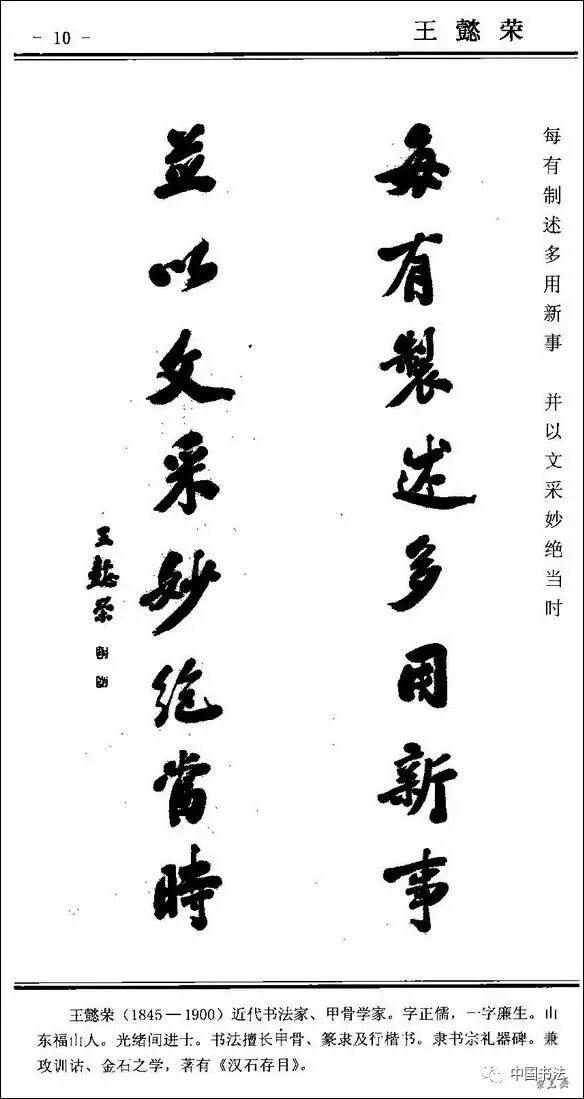 - 10 -
王懿荣
每有制述多用新事 并以文采妙绝当时
每有製述多用新事
並以文采妙绝當時
王懿榮
王懿荣（1845—1900）近代书法家、甲骨学家。字正儒，一字廉生。山
东福山人。光绪间进士。书法擅长甲骨、篆隶及行楷书。隶书宗礼器碑。兼
攻训诂、金石之学，著有《汉石存目》。
中国书法